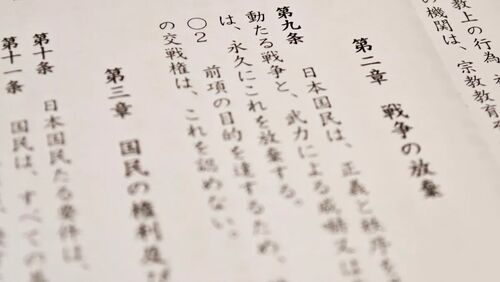 教上の行為
の機関は、宗教教育
第二章　戦争の放棄
第九条　日本国民は、正義と秩序を
動たる戦争と、武力による威嚇又は
は、永久にこれを放棄する。
○2　前項の目的を達するため、
の交戦権は、これを認めない。
第三章　国民の権利及び
第十条　日本国民たる要件は、
第十一条　国民は、すべての基